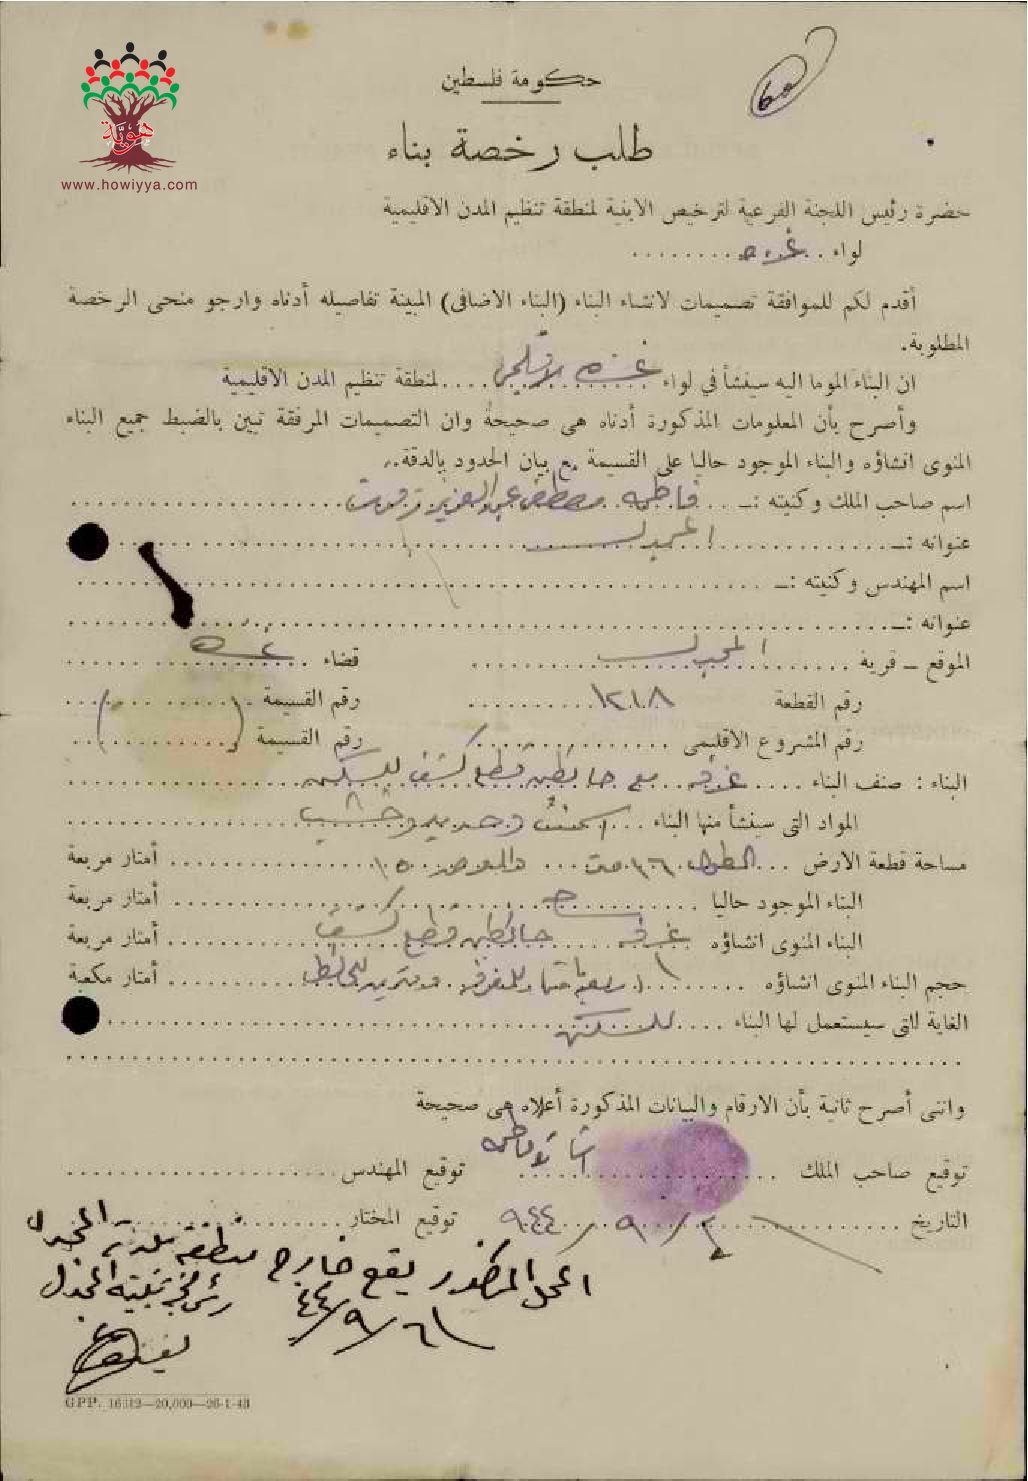 هوية
www.howiyya.com
حكومة فلسطين
طلب رخصة بناء
حضرة رئيس اللجنة الفرعية لترخيص الابنية لمنطقة تنظيم المدن الاقليمية
لواء غزه
أقدم لكم للموافقة تصميمات لانشاء البناء (البناء الاضافى) المبينة تفاصيله أدناه وارجو منحى الرخصة
المطلوبة.
ان البناء الموما اليه سينشأ في لواء غزه لمنطقة تنظيم المدن الاقليمية
وأصرح بأن المعلومات المذكورة أدناه هى صحيحة وان التصميمات المرفقة تبين بالضبط جميع البناء
المنوى انشاؤه والبناء الموجود حاليا على القسيمة مع بيان الحدود بالدقة.
اسم صاحب الملك وكنيته :ـ فاطمه مصطفى عبد العزيز
عنوانه :ـ المجدل
اسم المهندس وكنيته :ـ
عنوانه :ـ
الموقع ـ قرية المجدل قضاء غزه
رقم القطعة ١٢١٨ رقم القسيمة
رقم المشروع الاقليمى رقم القسيمة ( )
البناء : صنف البناء غرفه مع حائطين قطع كشف للسكن
المواد التى سينشأ منها البناء اسمنت وحديد وخشب
مساحة قطعة الارض الطول ١٦ والعرض ١٥ أمتار مربعة
البناء الموجود حاليا أمتار مربعة
البناء المنوى انشاؤه غرفه حائطين قطع كشف أمتار مربعة
حجم البناء المنوى انشاؤه للغرفه ومترين للحائط أمتار مكعبة
الغاية للتى سيستعمل لها البناء للسكن
واننى أصرح ثانية بأن الارقام والبيانات المذكورة أعلاه هى صحيحة
توقيع صاحب الملك فاطمه توقيع المهندس
التاريخ ٢/٩/٩٤٤ توقيع المختار
المحل المذكور يقع خارج منطقة بلدية المجدل
رئيس بلدية المجدل
٦/٩/٤٤
GPP. 16312—20,000—26-1-43